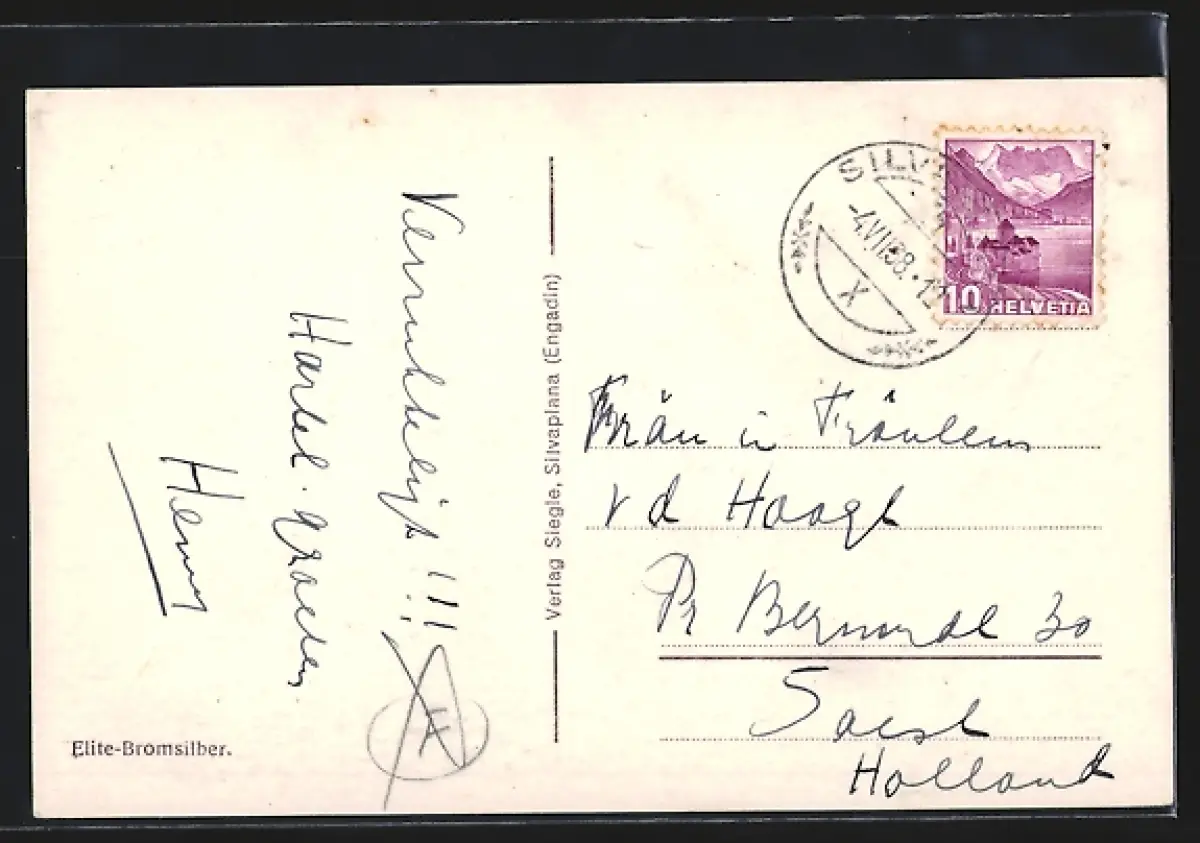 Verrukkelijk !!!
Hartel. groeten
Henny
Elite-Bromsilber.
Verlag Siegle, Silvaplana (Engadin)
SILV
-4.VII.38.-12
X
10 HELVETIA
Fräulein
v d Hoogt
Pr Bernardl 30
Soest
Holland